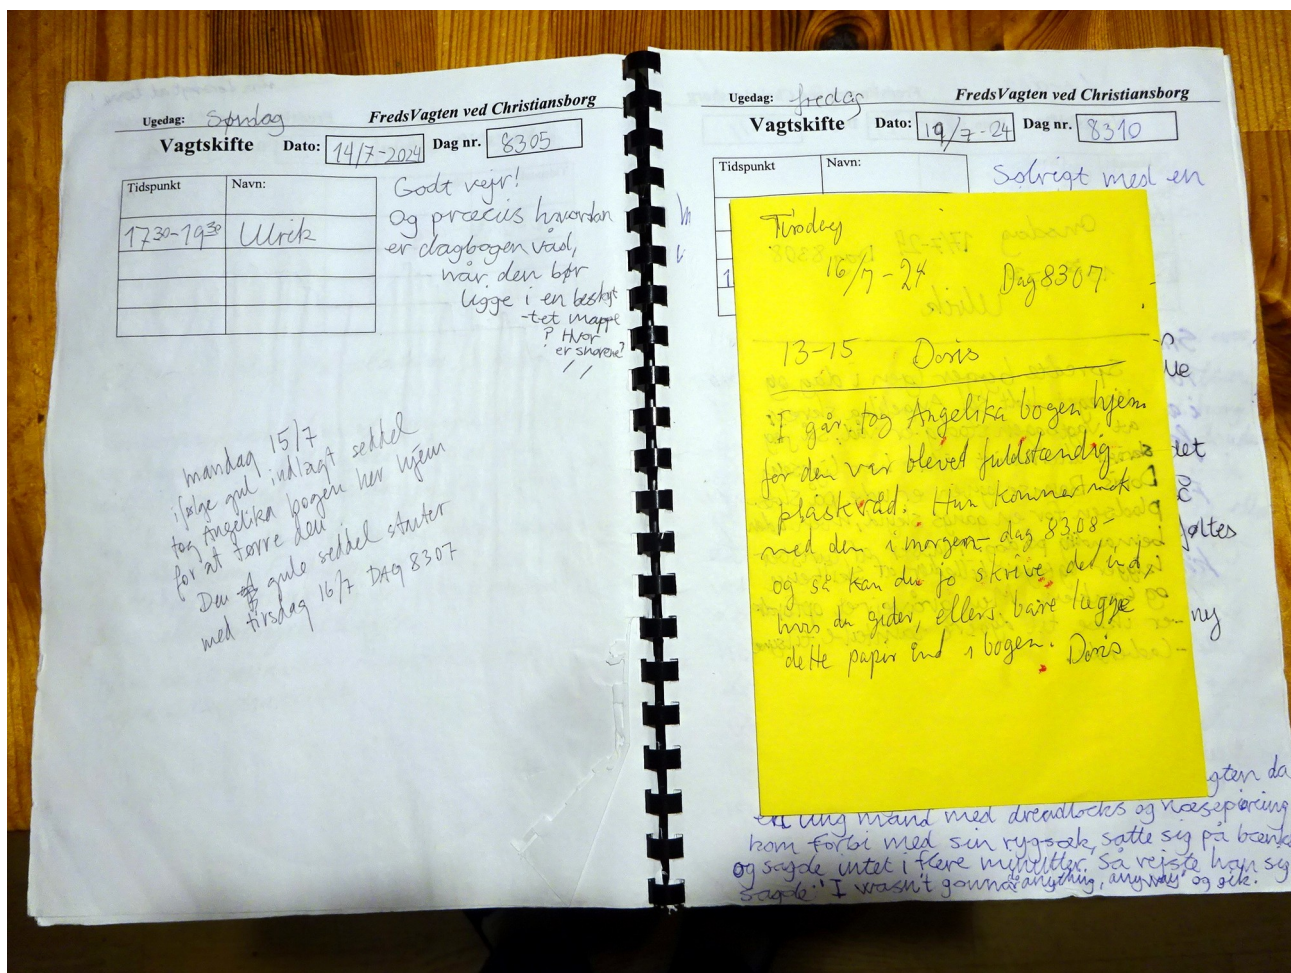 Ugedag: Søndag FredsVagten ved Christiansborg
Vagtskifte Dato: 14/7-2024 Dag nr. 8305
Tidspunkt Navn:
1730-1930 Ulrik
Godt vejr!
og præcis hvordan
er dagbogen våd,
når den bør
ligge i en beskyt
-tet mappe
? Hvor
er snorene?
mandag 15/7
ifølge gul indlagt seddel
tog Angelika bogen her hjem
for at tørre den
Den gule seddel starter
med tirsdag 16/7 DAG 8307
Ugedag: fredag FredsVagten ved Christiansborg
Vagtskifte Dato: 19/7-24 Dag nr. 8310
Tidspunkt Navn:
Solrigt med en
Tirsdag
16/7-24 Dag 8307
13-15 Doris
I går tog Angelika bogen hjem
for den var blevet fuldstændig
plaskvåd. Hun kommer
med den i morgen - dag 8308 -
og så kan du jo skrive det ind,
hvis du gider, ellers bare lægge
dette papir ind i bogen. Doris
ue
det
føltes
ny
gten da
en ung mand med dreadlocks og næsepiercing
kom forbi med sin rygsæk, satte sig på bænk
og sagde intet i flere minutter. Så rejste han sig
sagde "I wasn't gonna do anything, anyway" og gik.